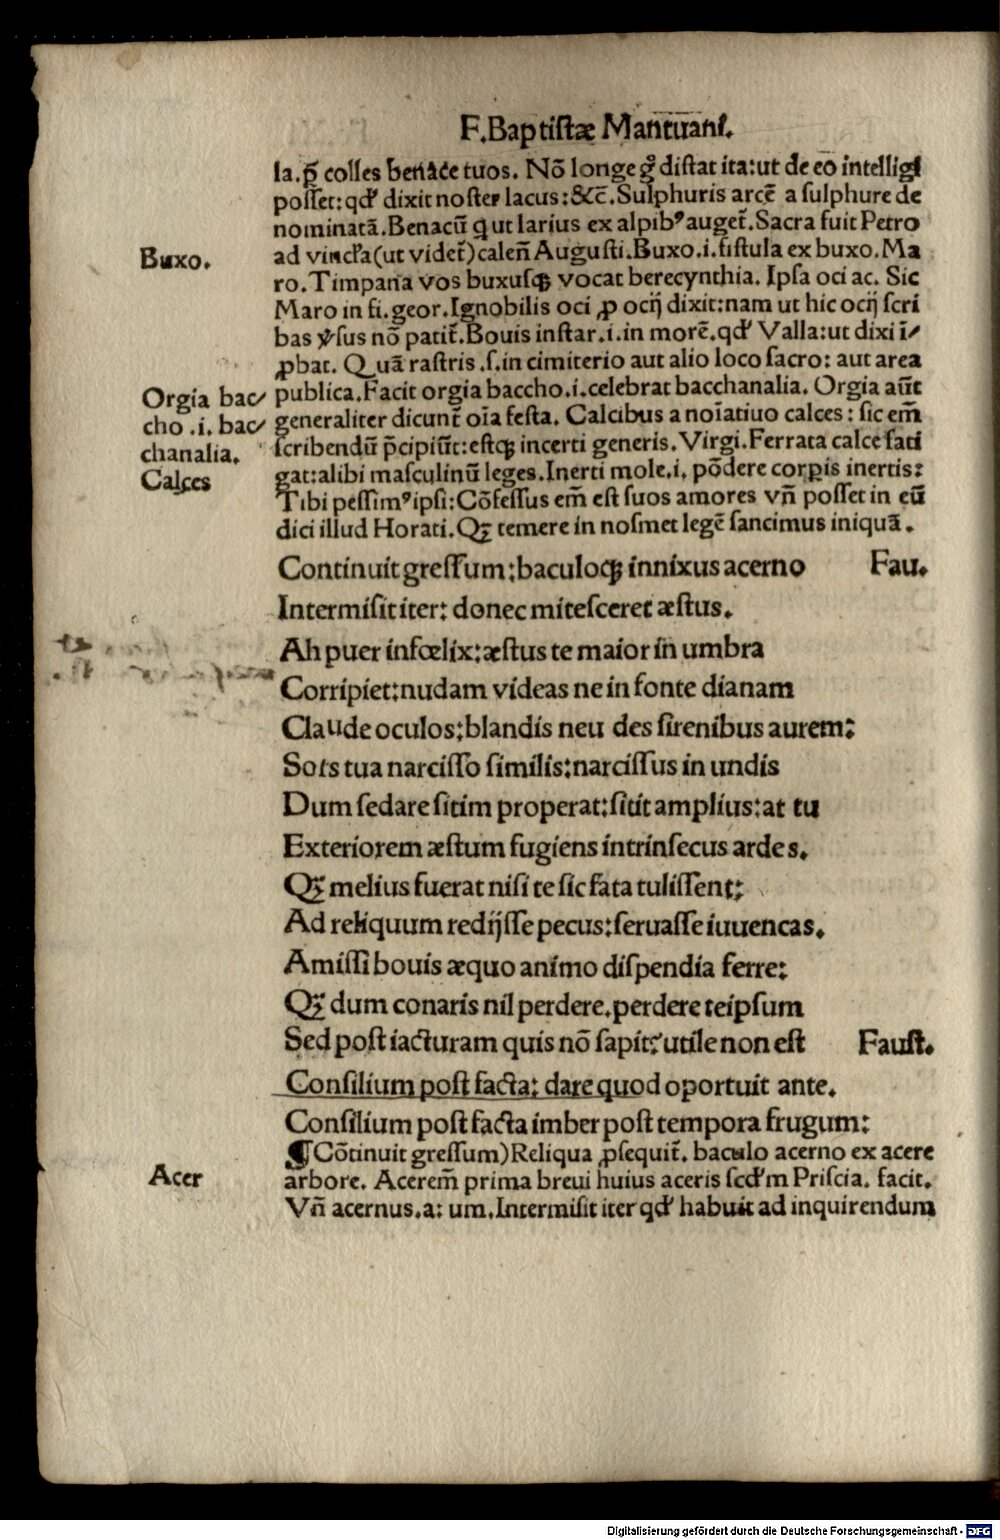 F.Baptistæ Mantuani.
la.p̄ colles benace tuos. Nō longe distat ita:ut de eo intelligi
posset:qd' dixit noster lacus:&c̄. Sulphuris arcē a sulphure de
nominatā.Benacū q ut larius ex alpibꝰ auget̄.Sacra fuit Petro
Buxo.
ad vincl'a(ut videt̄)caleñ Augusti.Buxo.i.fistula ex buxo.Ma
ro.Timpana vos buxusqꝫ vocat berecynthia. Ipsa oci ac. Sic
Maro in fi.geor.Ignobilis oci ꝓ ocij dixit:nam ut hic ocij scri
bas v̓sus nō patit̄.Bouis instar.i.in morē.qd' Valla:ut dixi ī⸗
ꝓbat. Quā rastris .s.in cimiterio aut alio loco sacro: aut area
Orgia bac⸗
publica.Facit orgia baccho.i.celebrat bacchanalia. Orgia aūt
cho .i. bac⸗
generaliter dicunt̄ oīa festa. Calcibus a noīatiuo calces: sic em̄
chanalia.
scribendū p̄cipiūt:estqꝫ incerti generis.Virgi.Ferrata calce fati
Calces
gat:alibi masculinū leges.Inerti mole.i. pōdere corꝑis inertis:
Tibi pessimꝰ ipsi:Cōfessus em̄ est suos amores vñ posset in eū
dici illud Horati.Qꝫ temere in nosmet legē sancimus iniquā.
Continuit gressum:baculoqꝫ innixus acerno Fau.
Intermisit iter: donec mitesceret æstus.
Ah puer infœlix:æstus te maior in umbra
Corripiet:nudam videas ne in fonte dianam
Claude oculos:blandis neu des sirenibus aurem:
Sors tua narcisso similis:narcissus in undis
Dum sedare sitim properat:sitit amplius:at tu
Exteriorem æstum fugiens intrinsecus ardes.
Qꝫ melius fuerat nisi te sic fata tulissent:
Ad reliquum redijsse pecus:seruasse iuuencas.
Amissi bouis æquo animo dispendia ferre:
Qꝫ dum conaris nil perdere.perdere teipsum
Sed post iacturam quis nō sapit:utile non est Faust.
Consilium post facta: dare quod oportuit ante.
Consilium post facta imber post tempora frugum:
¶Cōtinuit gressum)Reliqua ꝓsequit̄. baculo acerno ex acere
Acer
arbore. Acerem̄ prima breui huius aceris scd'm Priscia. facit.
Vñ acernus.a: um.Intermisit iter qd' habuit ad inquirendum
Digitalisierung gefördert durch die Deutsche Forschungsgemeinschaft - DFG